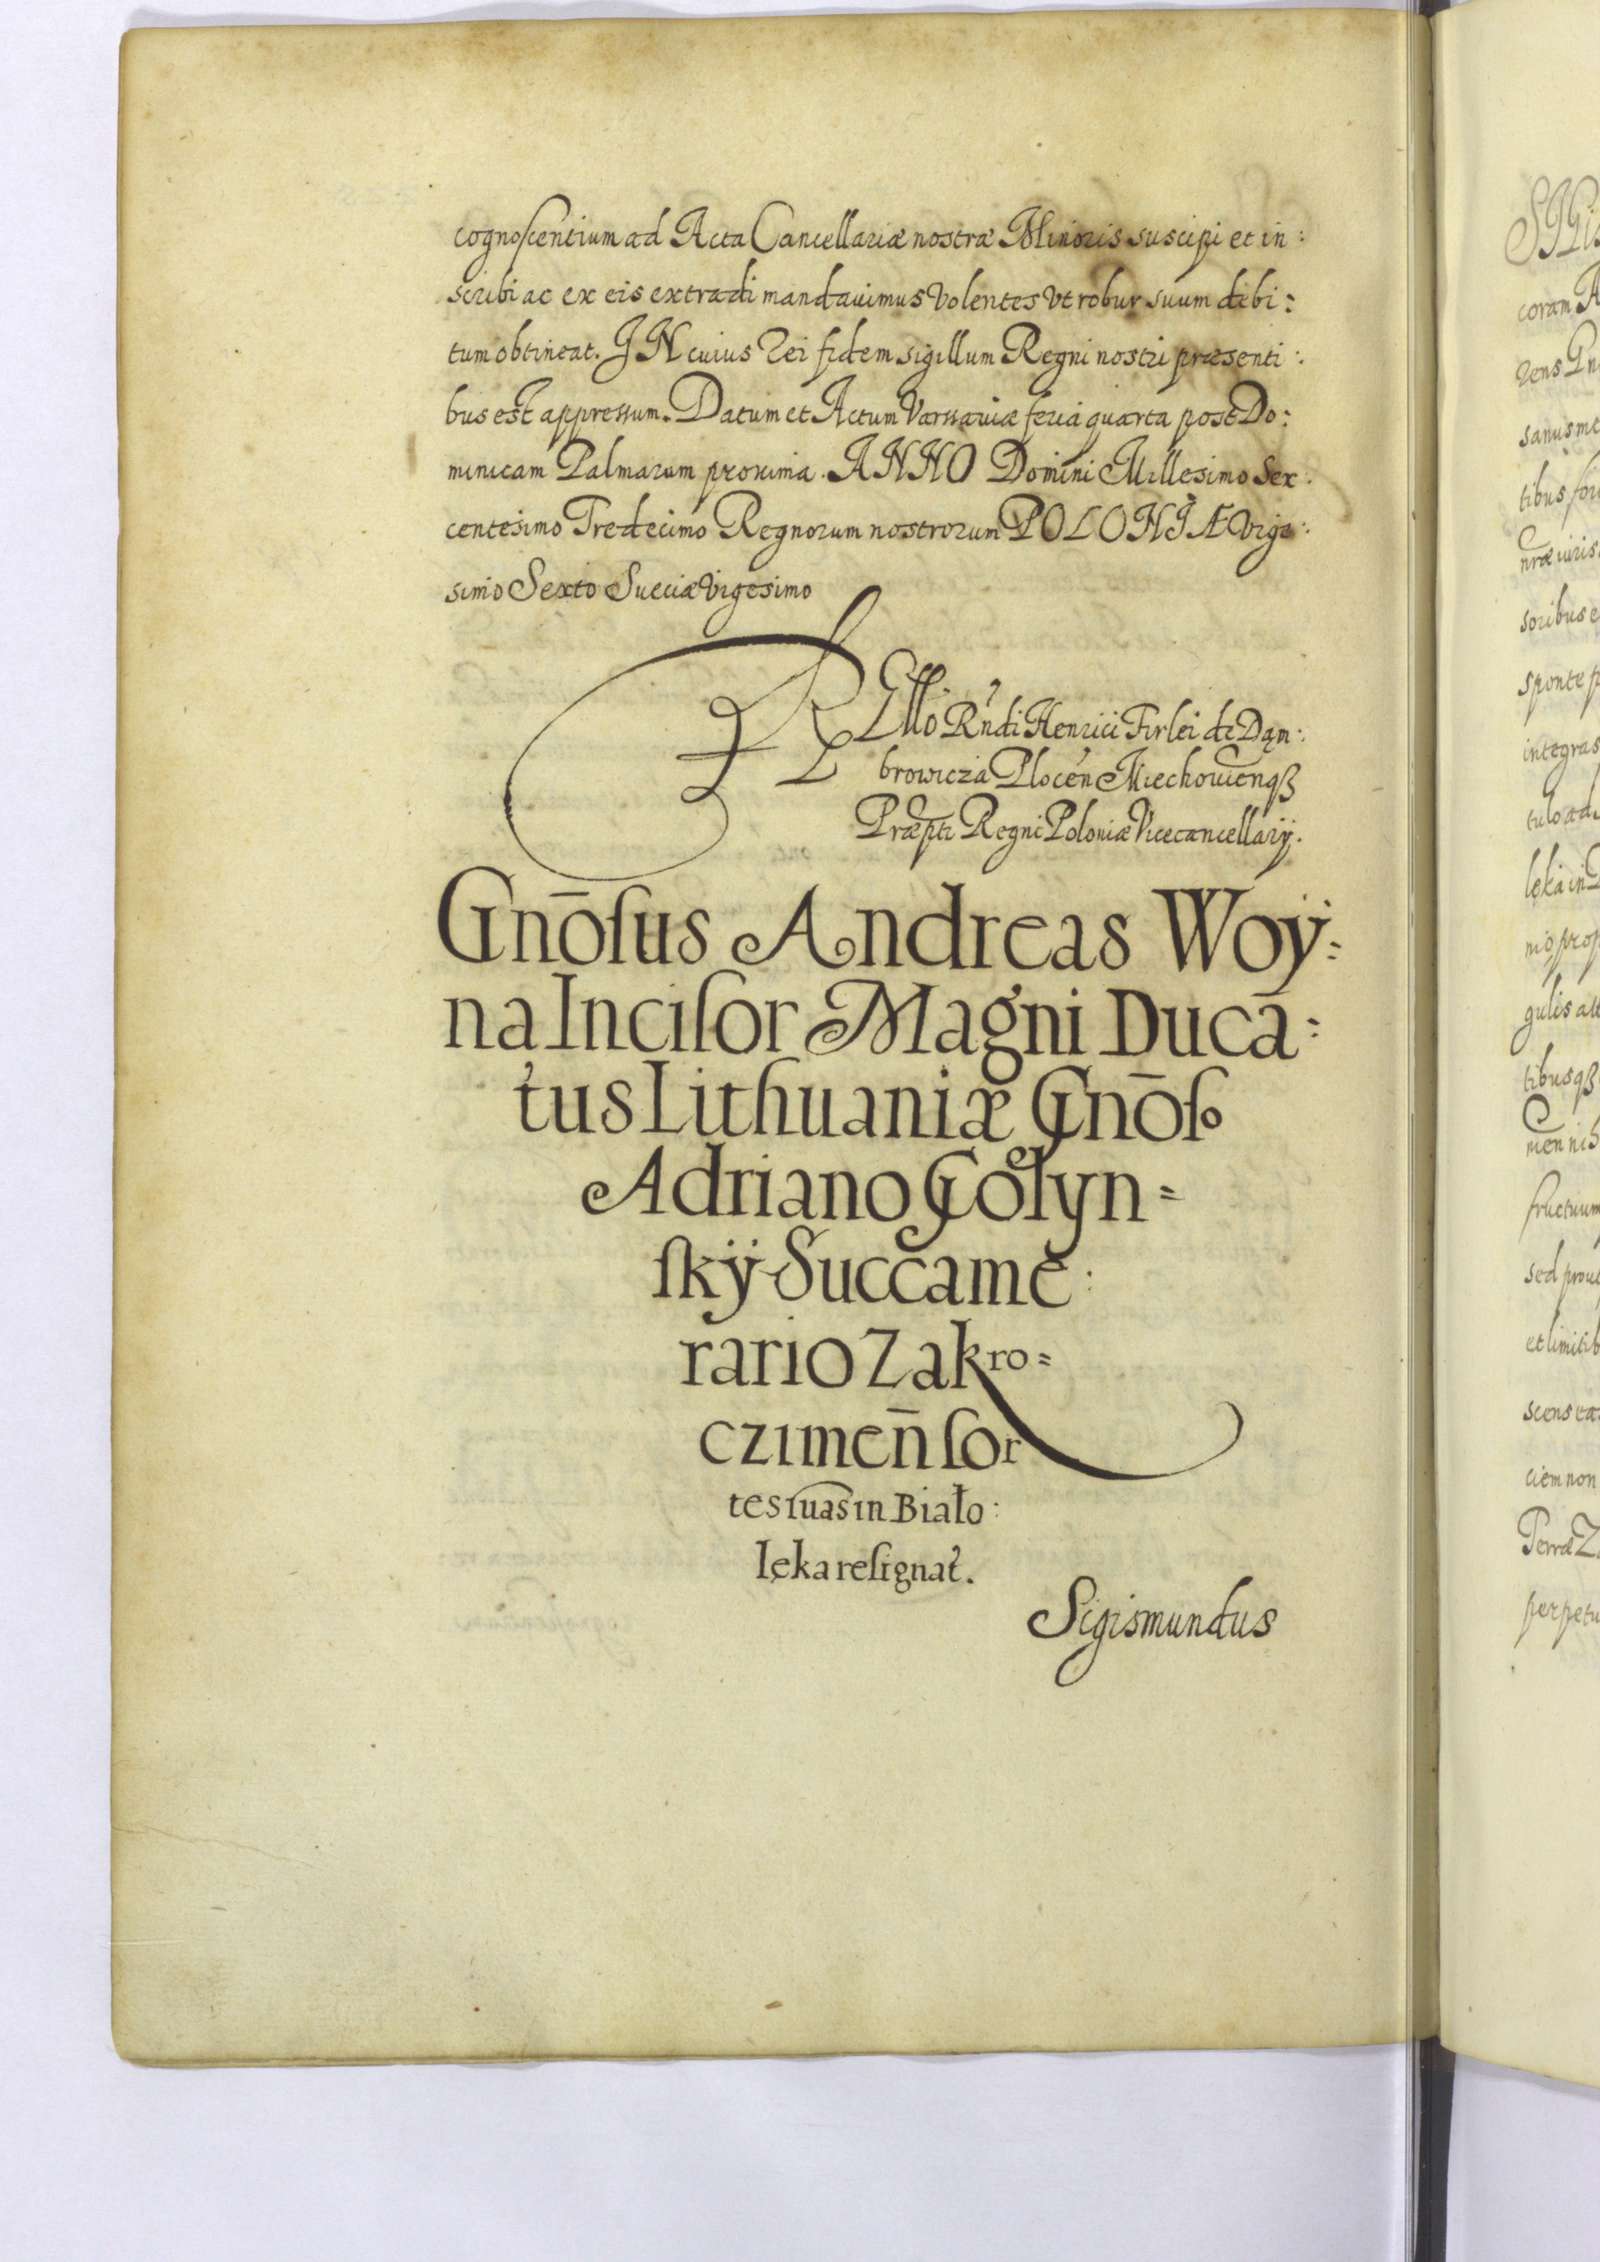 cognoscentium ad Acta Cancellariæ nostræ Minoris suscipi et in:
scribi ac ex eis extradi mandauimus Volentes Vt robur suum debi:
tum obtineat. IN cuius rei fidem sigillum Regni nostri præsenti:
bus est appressum. Datum et Actum Varssauiæ feria quarta post Do:
minicam Palmarum proxima. ANNO Domini Millesimo Sex:
centesimo Tredecimo Regnorum nostrorum POLONIÆ Vige:
simo Sexto Sueciæ Vigesimo
Rello Rndi Henrici Firlei de Dąm:
browicza Plocen Miechouienqȝ
Præpti Regni Poloniæ Vicecancellarij.
Gnōſus Andreas Woÿ:
na Inciſor Magni Duca:
tus Lithuaniæ Gnōſo
Adriano Gołyn=
ſkÿ Succame:
rario Zakro=
czimen̄ ſor
tes ſuas in Biało:
lęka reſignat.
Sigismundus
SIGis
coram A
rens
sanus me
tibus
soribus e
sponte p
integras
tulo ad
lęka in
mo prop
gulis
tibusqȝ
men
fructuum
sed prout
et limitib
scens
ciem non
Terræ Z
perpetu